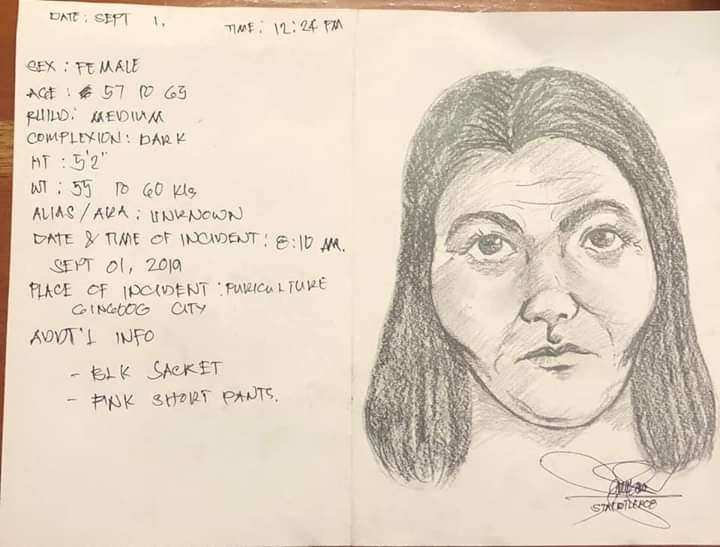 DATE: SEPT 1,
TIME: 12:24 PM
SEX: FEMALE
AGE: 57 TO 65
BUILD: MEDIUM
COMPLEXION: DARK
HT: 5'2"
WT: 55 TO 60 KLg
ALIAS/AKA: UNKNOWN
DATE & TIME OF INCIDENT: 8:10 AM.
SEPT 01, 2019
PLACE OF INCIDENT: PURICULTURE
GINGOOG CITY
ADDT'L INFO
- BLK JACKET
- PINK SHORT PANTS.